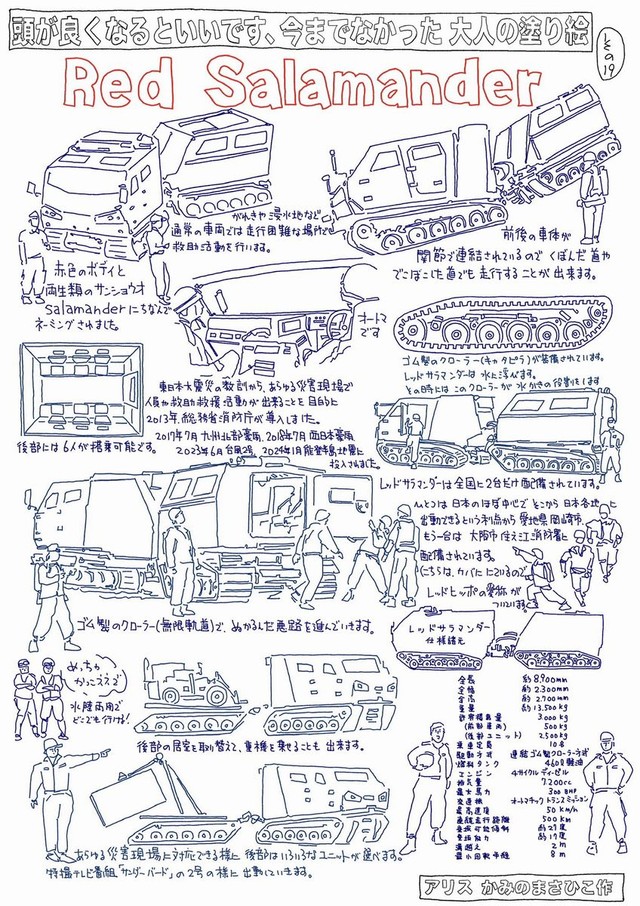 頭が良くなるといいです、今までなかった 大人の塗り絵
その19
Red Salamander
がれきや浸水地など
通常の車両では走行困難な場所で
救助活動を行います。
前後の車体が
関節で連結されているので くぼんだ道や
でこぼこした道でも走行することが出来ます。
赤色のボディと
両生類のサンショウオ
Salamanderにちなんで
ネーミングされました。
オートマ
です
ゴム製のクローラー(キャタピラ)が装備されています。
レッドサラマンダーは水に浮べます。
その時にはこのクローラーが水かきの役割をします
後部には6人が搭乗可能です。
東日本大震災の教訓から、あらゆる災害現場で
人員や救助救援活動が出来ることを目的に
2013年、総務省消防庁が導入しました。
2017年7月 九州北部豪雨、2018年7月 西日本豪雨
2023年6月 台風2号、2024年1月能登半島地震に
投入されました。
レッドサラマンダーは全国に2台だけ配備されています。
ひとつは 日本のほぼ中心で そこから 日本各地に
出動できるという利点から 愛知県岡崎市、
もう一台は 大阪市住之江消防署に
配備されています。
こちらは、カバににているので
レッドヒッポの愛称が
ついています。
ゴム製のクローラー(無限軌道)で、ぬかるんだ悪路を進んでいきます。
めっちゃ
かっこええで
水陸両用で
どこでも行ける!
レッドサラマンダー
仕様諸元
全長 約8.900mm
全幅 約2.300mm
全高 約2.700mm
重量 約13.500kg
許容積載量 3.000kg
(前部車両) 500kg
(後部ユニット) 2.500kg
乗車定員 10名
駆動方式 連結ゴム製クローラー方式
燃料タンク 460ℓ 軽油
エンジン 4サイクルディーゼル
排気量 7.200cc
最大馬力 300BHP
変速機 オートマチックトランスミッション
最高速度 50km/h
連続走行距離 500km
登坂可能傾斜 約27度
登坂能力 約17度
溝越え 2m
最小回転半径 8m
後部の居室を取替えて、重機を乗せることも 出来ます。
あらゆる災害現場に対応できる様に 後部はいろいろなユニットが選べます。
特撮テレビ番組「サンダーバード」の2号の様に出動していきます。
アリス かみのまさひこ作